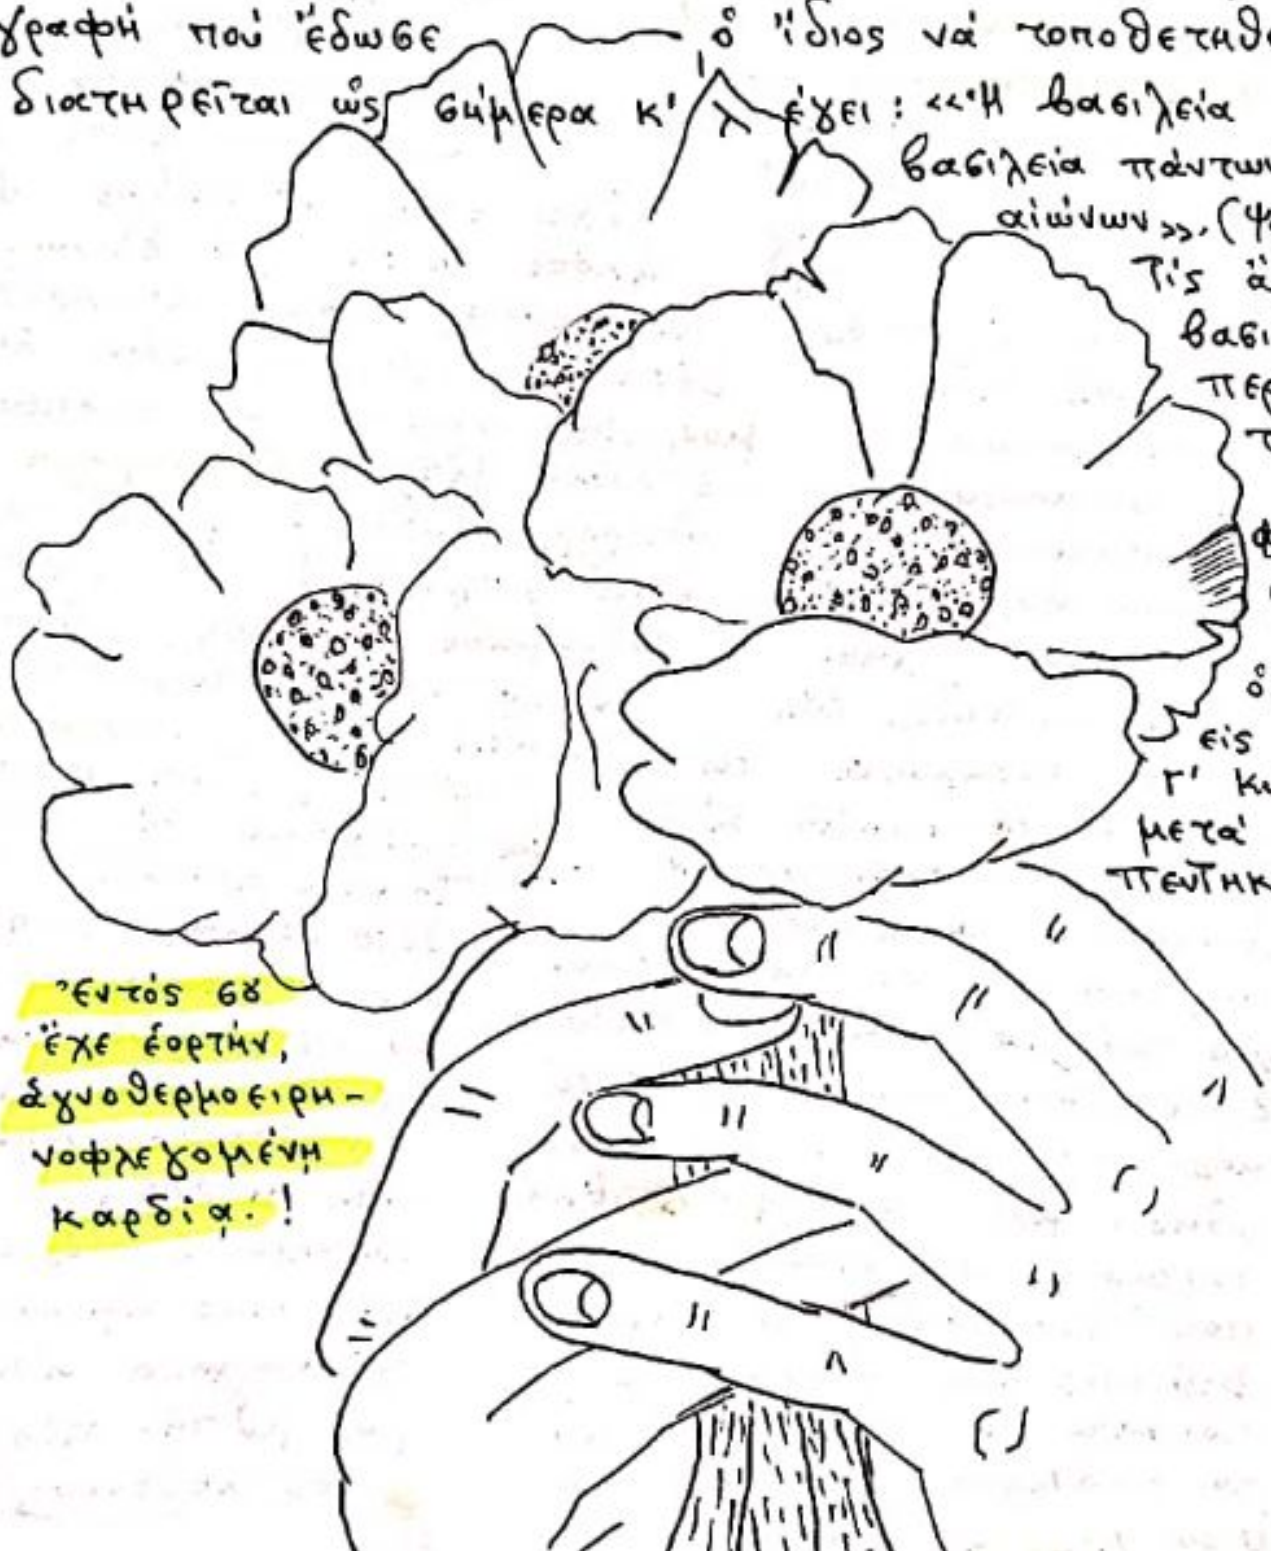 γραφή πού ἔδωσε ὁ ἴδιος νά τοποθετηθ
διατηρεῖται ὡς σήμερα κ' λέγει: «Ἡ βασιλεία
βασιλεία πάντων
αἰώνων». (ψ
Τίς ἄ
βασι
περ
τ
φ
ὁ
εἰς
Γ' Κυ
μετά
Πεντηκ
Ἐντός σου
ἔχε ἑορτήν,
ἁγνοθερμοειρη-
νοφλεγομένῃ
καρδίᾳ.!